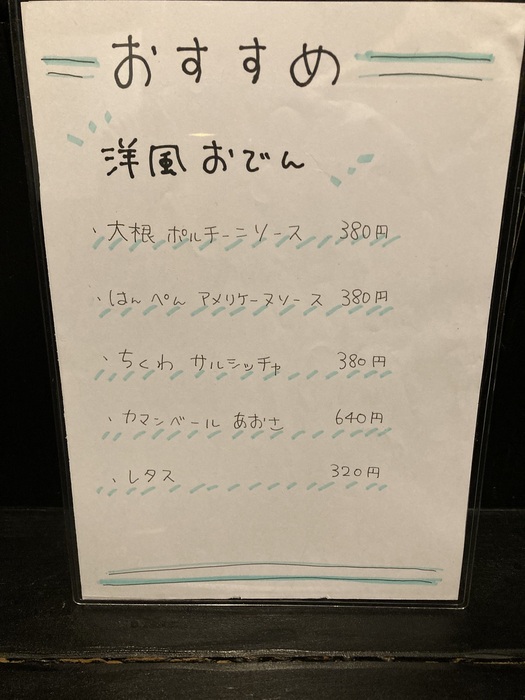 おすすめ
洋風おでん
・大根 ポルチーニソース 380円
・はんぺん アメリケーヌソース 380円
・ちくわ サルシッチャ 380円
・カマンベール あおさ 640円
・レタス 320円